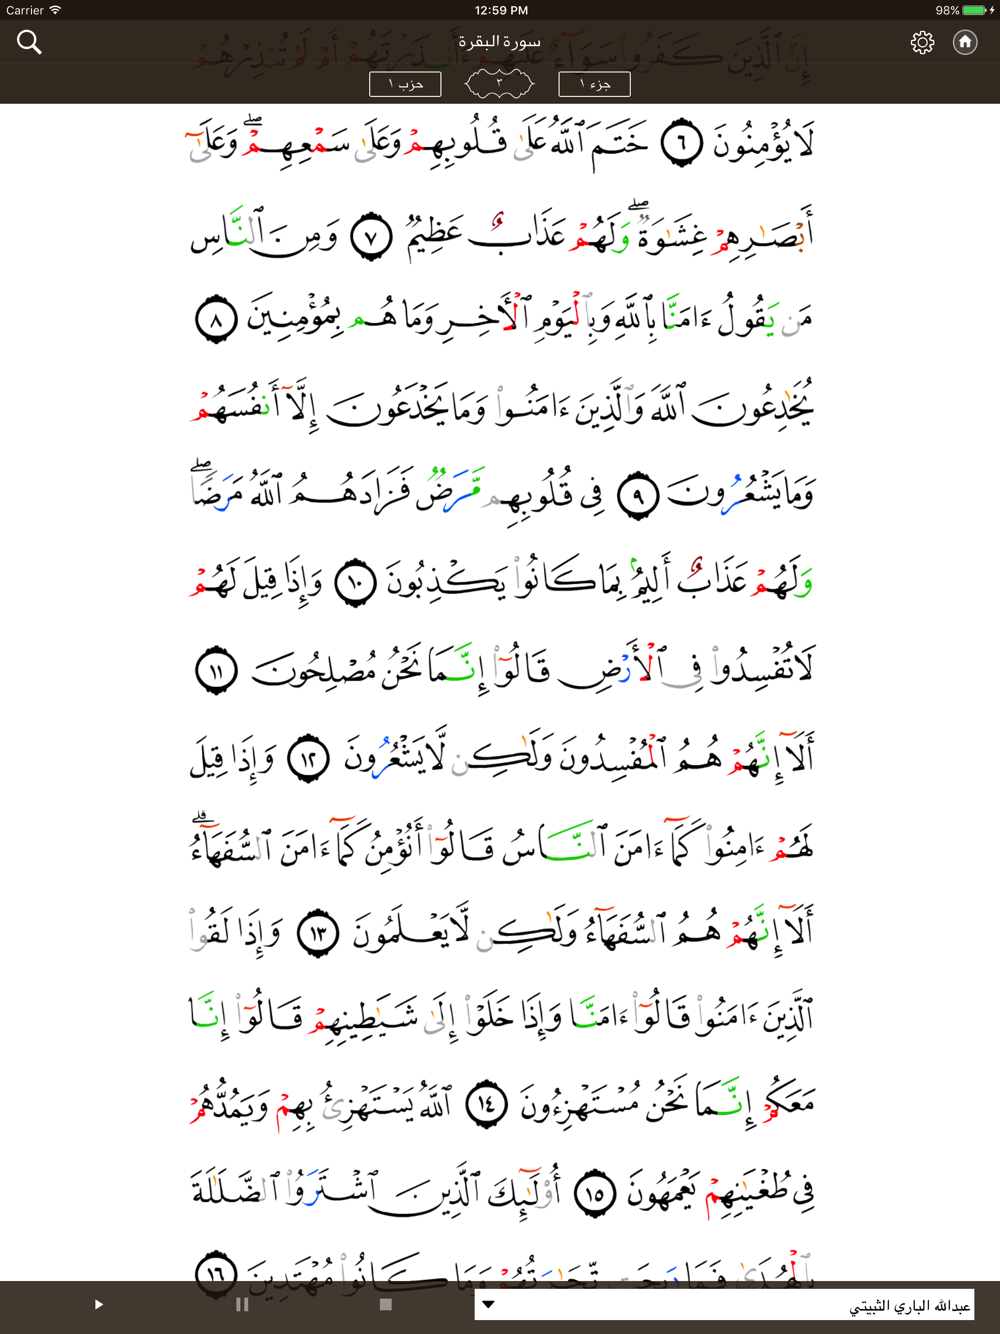 Carrier 12:59 PM 98%
سورة البقرة
جزء ١ ٣ حزب ١
إِنَّ ٱلَّذِينَ كَفَرُوا۟ سَوَآءٌ عَلَيْهِمْ ءَأَنذَرْتَهُمْ أَمْ لَمْ تُنذِرْهُمْ
لَا يُؤْمِنُونَ ٦ خَتَمَ ٱللَّهُ عَلَىٰ قُلُوبِهِمْ وَعَلَىٰ سَمْعِهِمْ ۖ وَعَلَىٰٓ
أَبْصَٰرِهِمْ غِشَٰوَةٌ ۖ وَلَهُمْ عَذَابٌ عَظِيمٌ ٧ وَمِنَ ٱلنَّاسِ
مَن يَقُولُ ءَامَنَّا بِٱللَّهِ وَبِٱلْيَوْمِ ٱلْأَخِرِ وَمَا هُم بِمُؤْمِنِينَ ٨
يُخَٰدِعُونَ ٱللَّهَ وَٱلَّذِينَ ءَامَنُوا۟ وَمَا يَخْدَعُونَ إِلَّآ أَنفُسَهُمْ
وَمَا يَشْعُرُونَ ٩ فِى قُلُوبِهِم مَّرَضٌ فَزَادَهُمُ ٱللَّهُ مَرَضًا ۖ
وَلَهُمْ عَذَابٌ أَلِيمٌۢ بِمَا كَانُوا۟ يَكْذِبُونَ ١٠ وَإِذَا قِيلَ لَهُمْ
لَا تُفْسِدُوا۟ فِى ٱلْأَرْضِ قَالُوٓا۟ إِنَّمَا نَحْنُ مُصْلِحُونَ ١١
أَلَآ إِنَّهُمْ هُمُ ٱلْمُفْسِدُونَ وَلَٰكِن لَّا يَشْعُرُونَ ١٢ وَإِذَا قِيلَ
لَهُمْ ءَامِنُوا۟ كَمَآ ءَامَنَ ٱلنَّاسُ قَالُوٓا۟ أَنُؤْمِنُ كَمَآ ءَامَنَ ٱلسُّفَهَآءُ ۗ
أَلَآ إِنَّهُمْ هُمُ ٱلسُّفَهَآءُ وَلَٰكِن لَّا يَعْلَمُونَ ١٣ وَإِذَا لَقُوا۟
ٱلَّذِينَ ءَامَنُوا۟ قَالُوٓا۟ ءَامَنَّا وَإِذَا خَلَوْا۟ إِلَىٰ شَيَٰطِينِهِمْ قَالُوٓا۟ إِنَّا
مَعَكُمْ إِنَّمَا نَحْنُ مُسْتَهْزِءُونَ ١٤ ٱللَّهُ يَسْتَهْزِئُ بِهِمْ وَيَمُدُّهُمْ
فِى طُغْيَٰنِهِمْ يَعْمَهُونَ ١٥ أُو۟لَٰٓئِكَ ٱلَّذِينَ ٱشْتَرَوُا۟ ٱلضَّلَٰلَةَ
بِٱلْهُدَىٰ فَمَا رَبِحَت تِّجَٰرَتُهُمْ وَمَا كَانُوا۟ مُهْتَدِينَ ١٦
عبدالله الباري الثبيتي